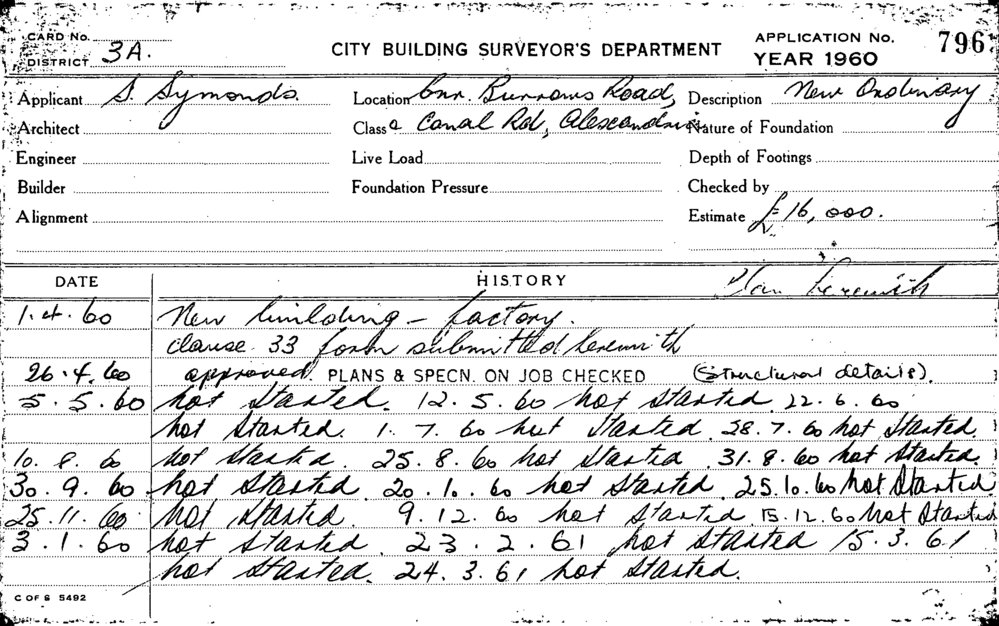 CARD No.
DISTRICT 3A.
CITY BUILDING SURVEYOR'S DEPARTMENT
APPLICATION No. 796
YEAR 1960
Applicant S. Symonds. Location Cnr. Burrows Road, Description New Ordinary
Architect Class & Canal Rd, Alexandria Nature of Foundation
Engineer Live Load Depth of Footings
Builder Foundation Pressure Checked by
Alignment Estimate £16,000.
DATE HISTORY Plan herewith
1.4.60 New building - factory.
clause 33 form submitted herewith
26.4.60 approved. PLANS & SPECN. ON JOB CHECKED (Structural details).
5.5.60 not started. 12.5.60 not started 22.6.60
not started. 1.7.60 not started. 28.7.60 not started.
10.8.60 not started. 25.8.60 not started. 31.8.60 not started.
30.9.60 not started. 20.10.60 not started. 25.10.60 not started
25.11.60 not started. 9.12.60 not started 15.12.60 not started
3.1.60 not started. 23.2.61 not started 15.3.61
not started. 24.3.61 not started.
C OF S 5492